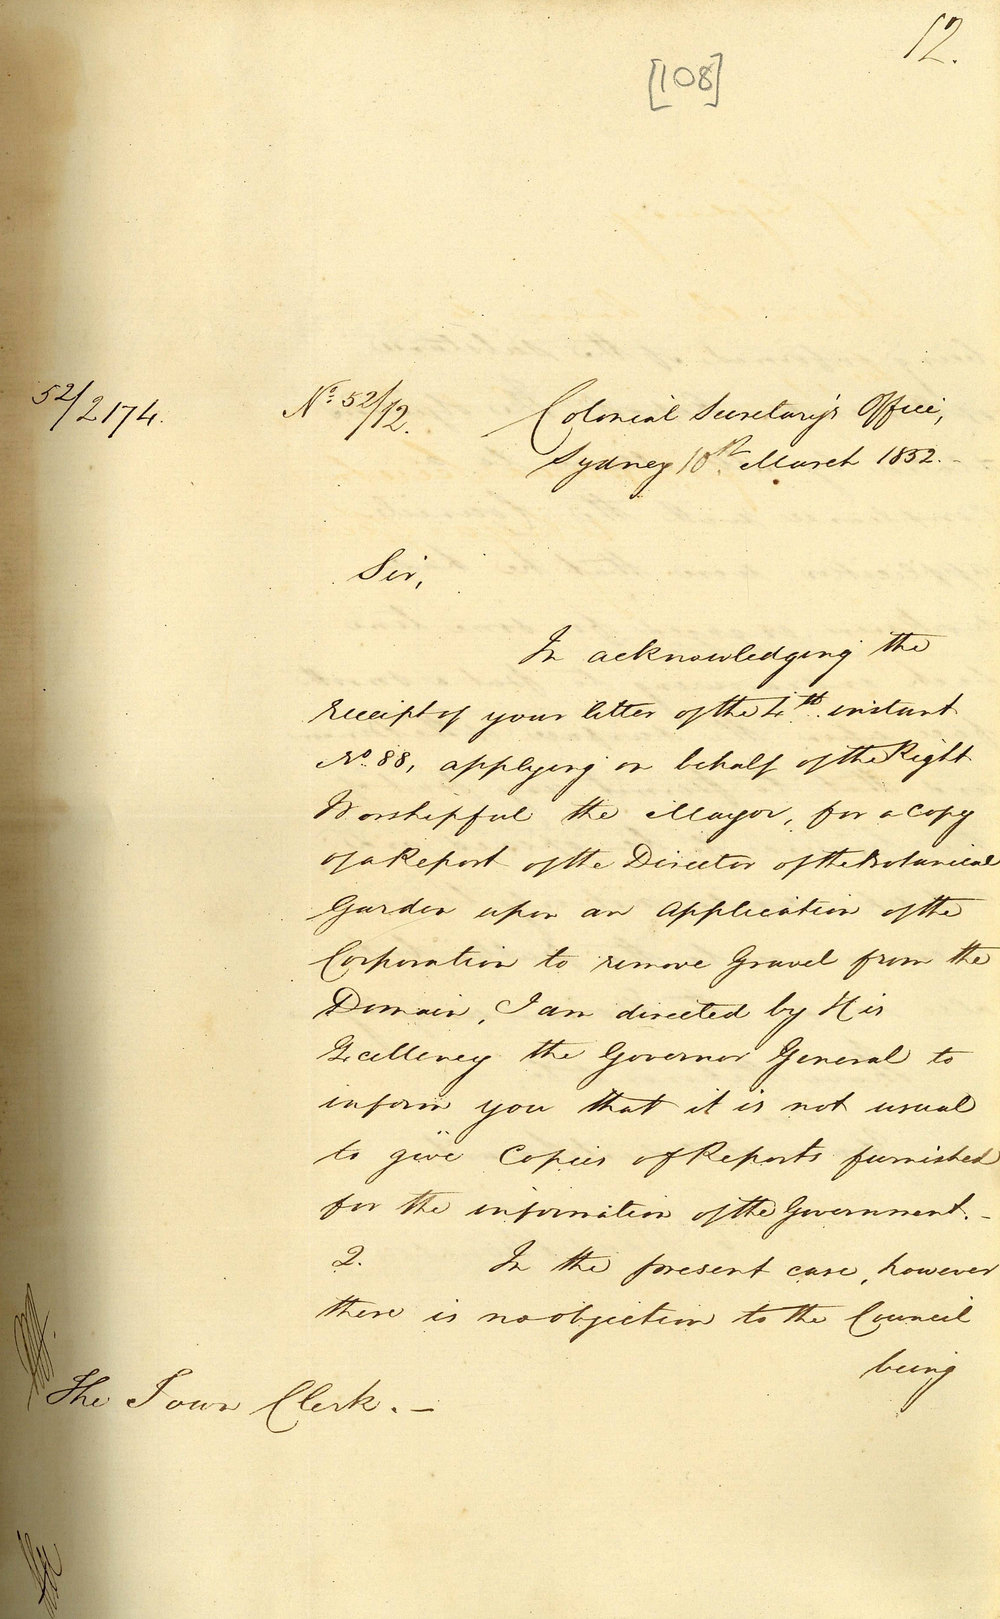 12.
[108]
52/2174.
No. 52/12.
Colonial Secretary's Office,
Sydney 10th March 1852.
Sir,
In acknowledging the
receipt of your letter of the 4th instant
No. 88, applying on behalf of the Right
Worshipful the Mayor, for a copy
of a Report of the Director of the Botanical
Garden upon an application of the
Corporation to remove Gravel from the
Domain, I am directed by His
Excellency the Governor General to
inform you that it is not usual
to give Copies of Reports furnished
for the information of the Government.
2. In the present case, however
there is no objection to the Council
being
The Town Clerk.